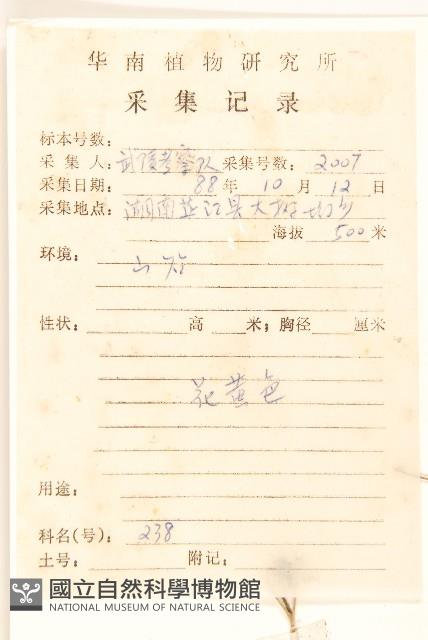 华南植物研究所
采集记录
标本号数：
采集人：武陵考察队 采集号数：2007
采集日期：88年10月12日
采集地点：湖南芷江县大
海拔 500米
环境：山
性状： 高 米；胸径 厘米
花黄色
用途：
科名(号)：238
土号： 附记：
國立自然科學博物館
NATIONAL MUSEUM OF NATURAL SCIENCE